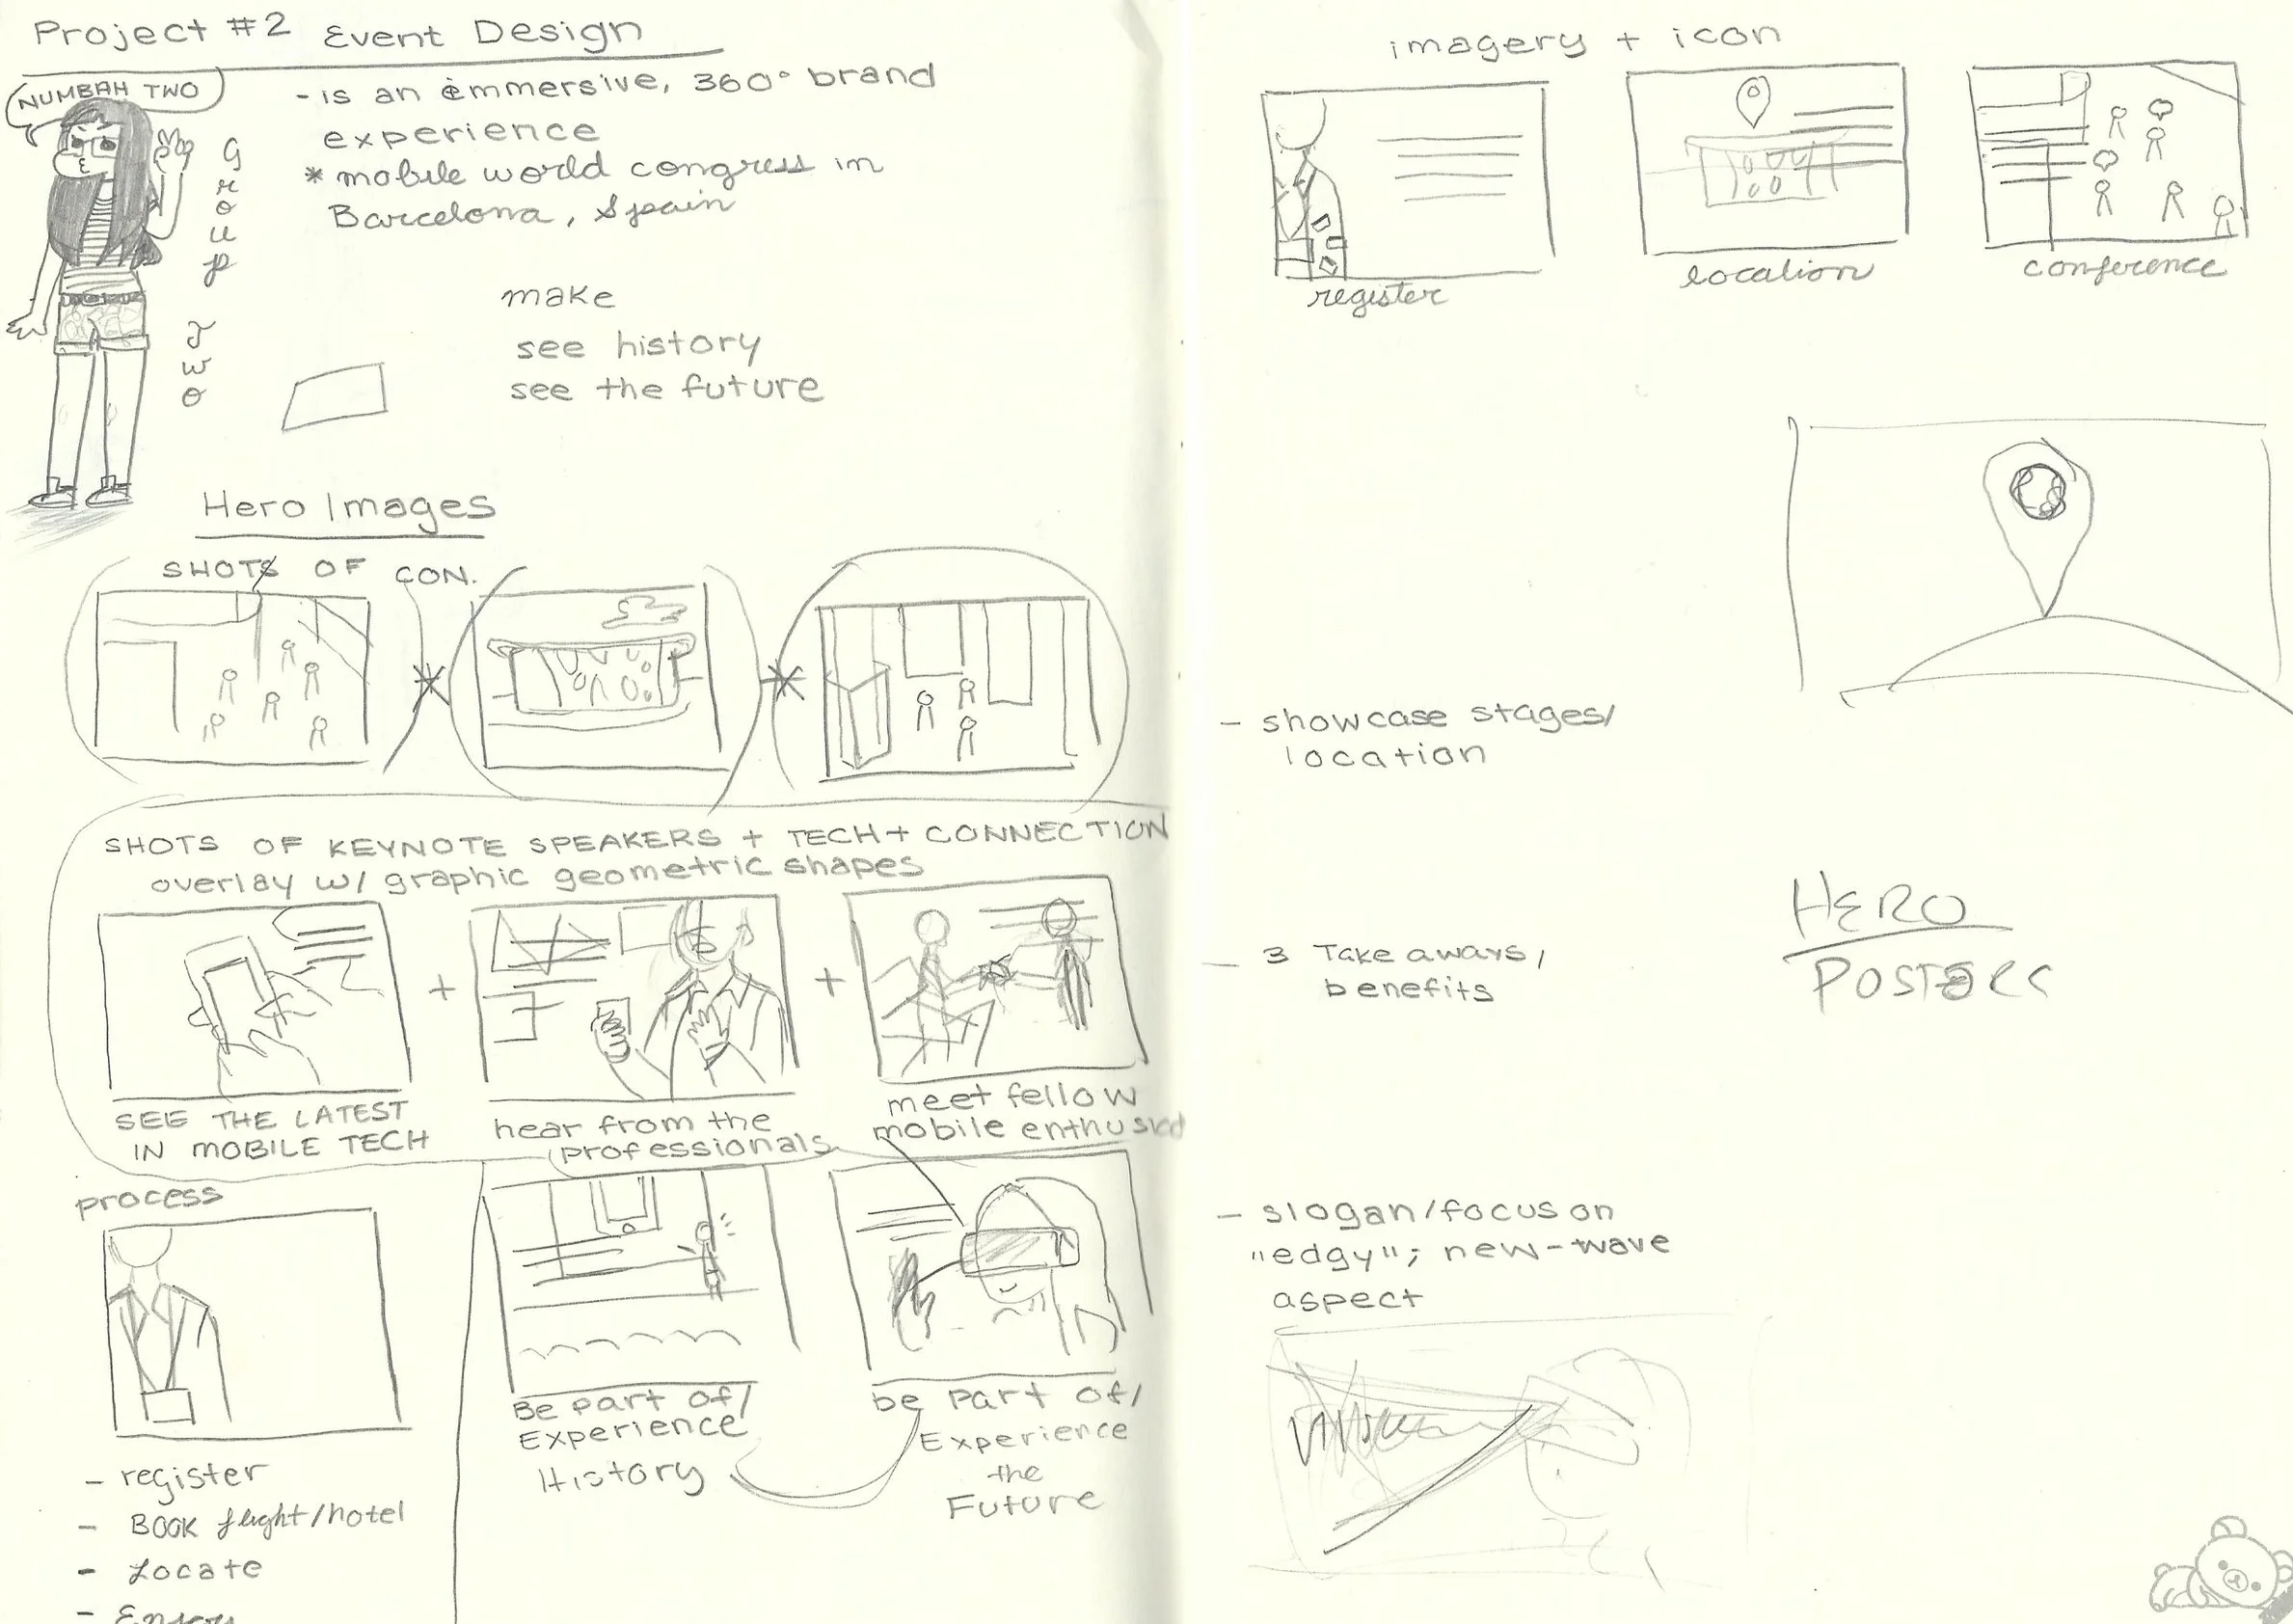 Project #2 Event Design
NUMBAH TWO
Group Two
- is an immersive, 360° brand
experience
* mobile world congress in
Barcelona, Spain
make
see history
see the future
Hero Images
SHOTS OF CON.
SHOTS OF KEYNOTE SPEAKERS + TECH + CONNECTION
overlay w/ graphic geometric shapes
+
+
SEE THE LATEST
IN MOBILE TECH
hear from the
professionals
meet fellow
mobile
process
- register
- BOOK flight/hotel
- Locate
- Enjoy
Be part of/
Experience
History
be part of/
Experience
the
Future
imagery + icon
register
location
conference
- showcase stages/
location
- 3 Take aways/
benefits
HERO
POSTERS
- slogan/focus on
"edgy"; new-wave
aspect